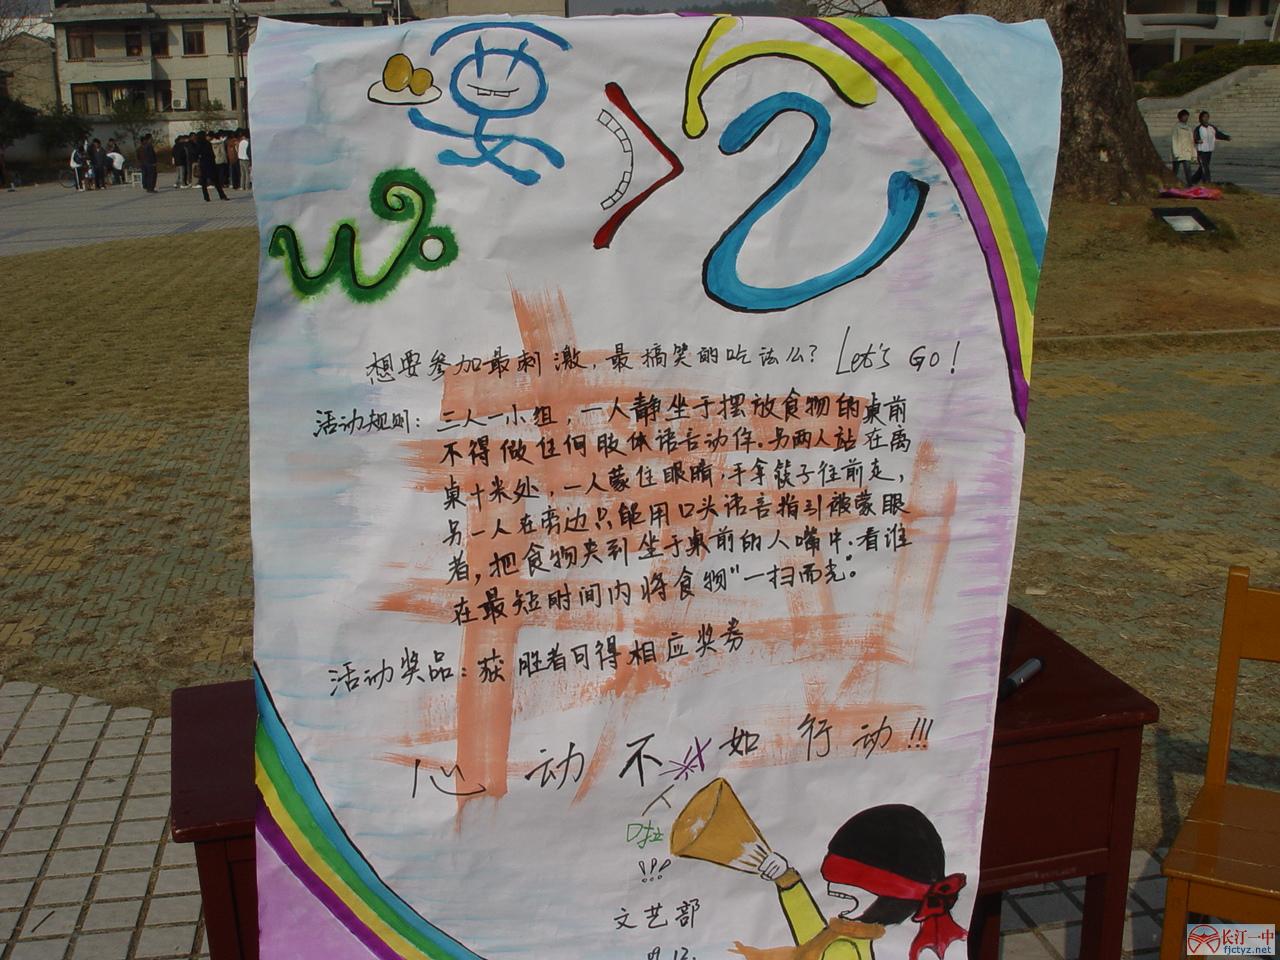 我爱吃
想要参加最刺激，最搞笑的吃法么？Let's Go!
活动规则：三人一小组，一人静坐于摆放食物的桌前
不得做任何肢体语言动作。另两人站在离
桌十米处，一人蒙住眼睛，手拿筷子往前走，
另一人在旁边只能用口头语言指引被蒙眼
者，把食物夹到坐于桌前的人嘴中。看谁
在最短时间内将食物"一扫而光"。
活动奖品：获胜者可得相应奖券
心动不如行动!!!
啦
!!!
文艺部
长汀一中
fjctyz.net